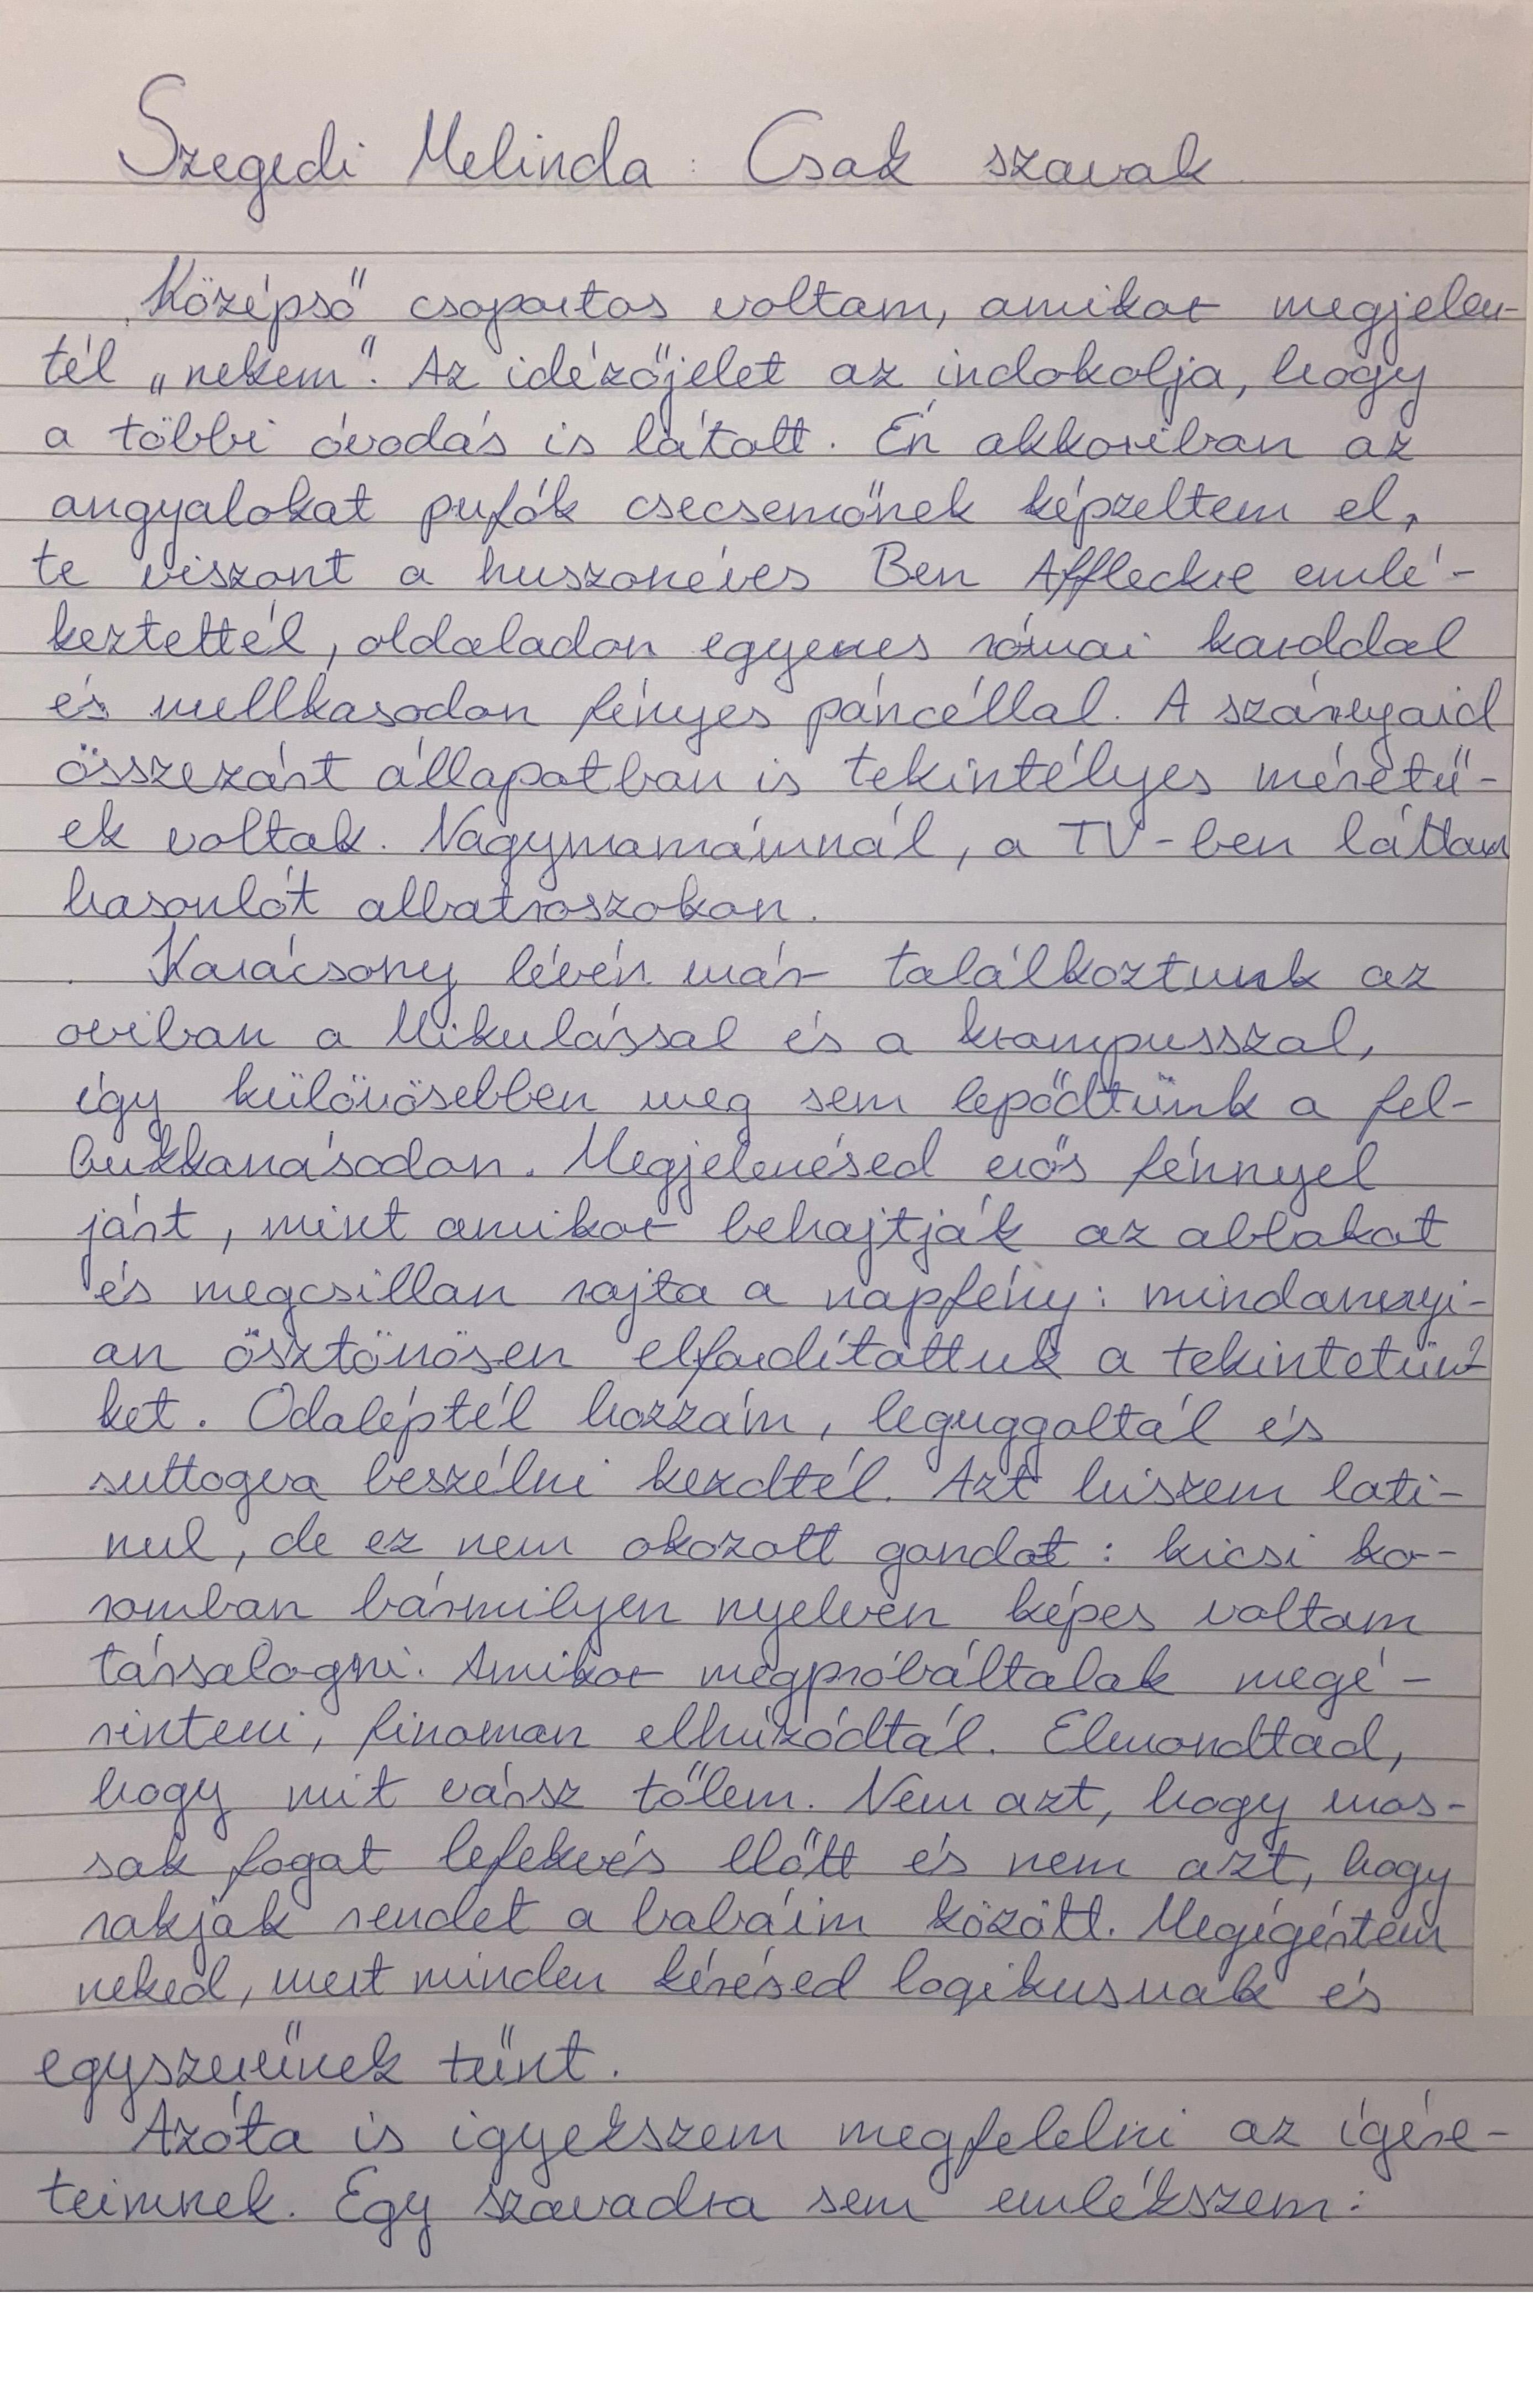 Szegedi Melinda: Csak szavak
Középső csoportos voltam, amikor megjelen-
tél „nekem". Az idézőjelet az indokolja, hogy
a többi óvodás is látott. Én akkoriban az
angyalokat pufók csecsemőnek képzeltem el,
te viszont a huszonéves Ben Affleckre emlé-
keztettél, oldaladon egyenes római karddal
és mellkasodon fényes páncéllal. A szárnyaid
összezárt állapotban is tekintélyes méretű-
ek voltak. Nagymamámnál, a TV-ben láttam
hasonlót albatroszokon.
Karácsony lévén már találkoztunk az
oviban a Mikulással és a krampusszal,
így különösebben meg sem lepődtünk a fel-
bukkanásodon. Megjelenésed erős fénnyel
járt, mint amikor behajtják az ablakot
és megcsillan rajta a napfény: mindannyi-
an ösztönösen elfordítottuk a tekintetün-
ket. Odaléptél hozzám, leguggoltál és
suttogva beszélni kezdtél. Azt hiszem lati-
nul, de ez nem okozott gondot: kicsi ko-
romban bármilyen nyelven képes voltam
társalogni. Amikor megpróbáltalak megé-
rinteni, finoman elhúzódtál. Elmondtad,
hogy mit vársz tőlem. Nem azt, hogy mos-
sak fogat lefekvés előtt és nem azt, hogy
rakjak rendet a babáim között. Megígértem
neked, mert minden kérésed logikusnak és
egyszerűnek tűnt.
Azóta is igyekszem megfelelni az ígére-
teimnek. Egy szavadra sem emlékszem: